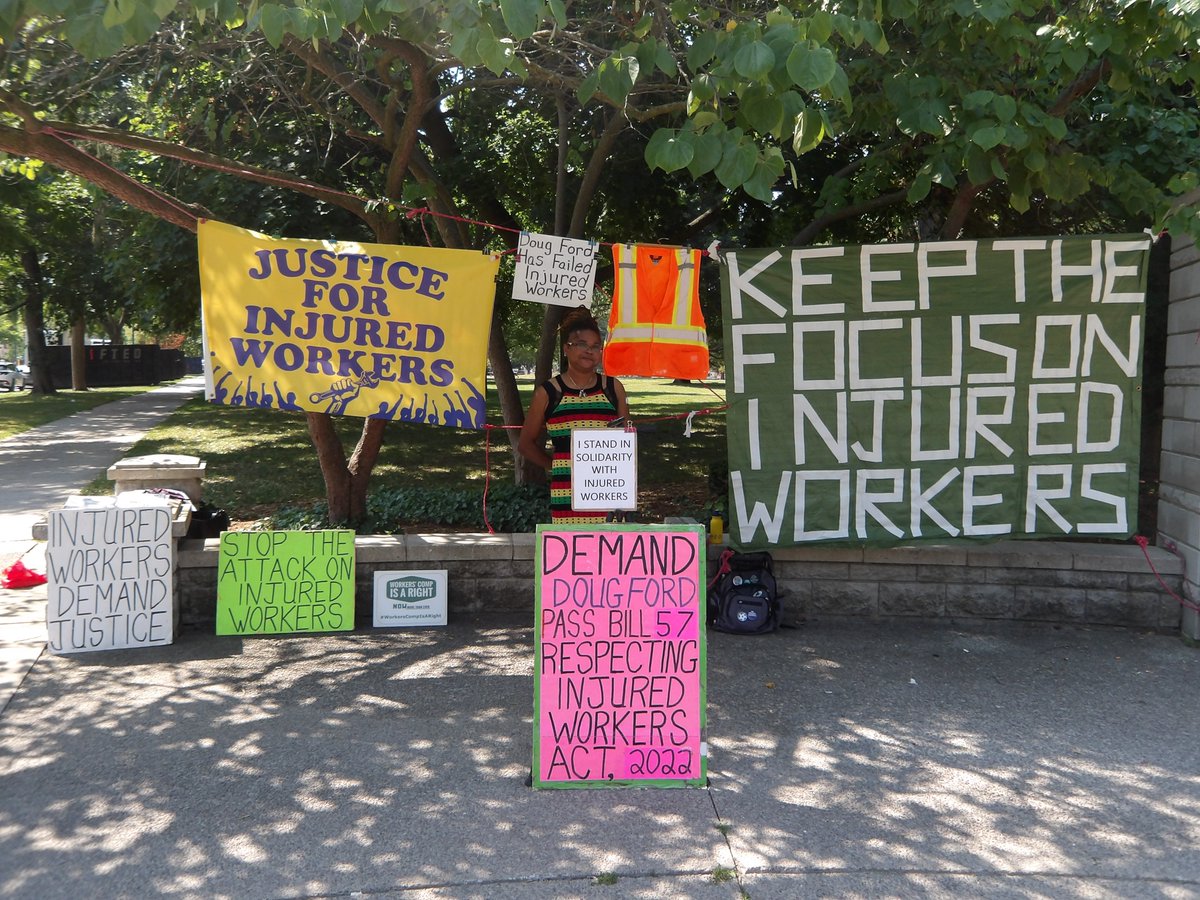 JUSTICE
FOR
INJURED
WORKERS
Doug Ford
Has Failed
Injured
Workers
KEEP THE
FOCUS ON
INJURED
WORKERS
I STAND IN
SOLIDARITY
WITH
INJURED
WORKERS
INJURED
WORKERS
DEMAND
JUSTICE
STOP THE
ATTACK ON
INJURED
WORKERS
WORKERS' COMP
IS A RIGHT
NOW
#WorkersCompIsARight
DEMAND
DOUG FORD
PASS BILL 57
RESPECTING
INJURED
WORKERS
ACT, 2022